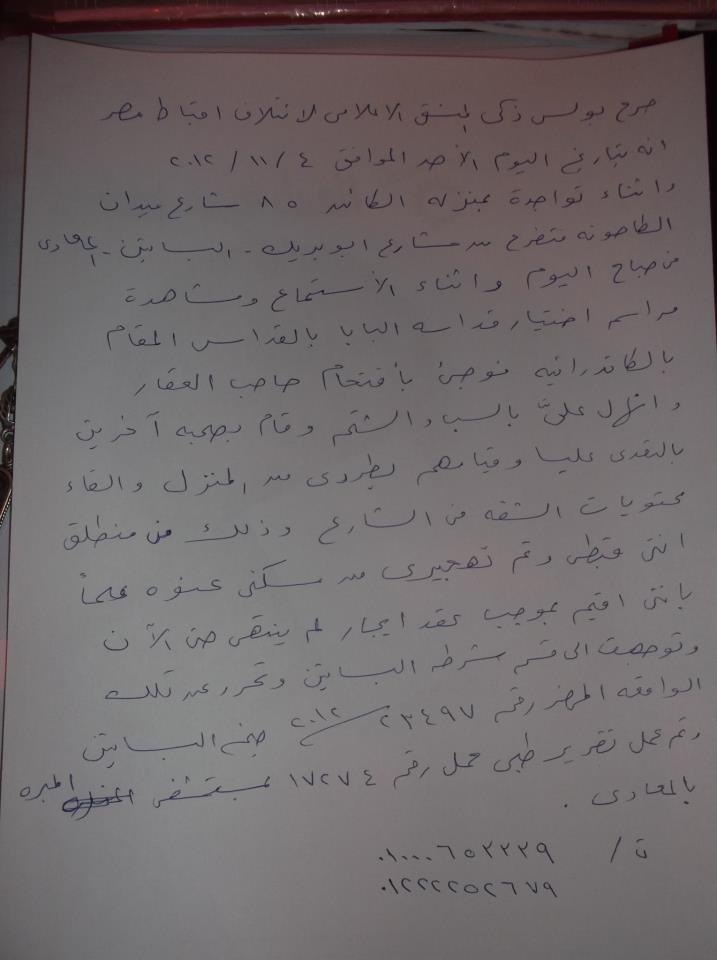 صرح بولس زكى المنسق الاعلامى لائتلاف اقباط مصر
انه بتاريخ اليوم الأحد الموافق ٤ / ١١ / ٢٠١٢
واثناء تواجدة بمنزله الكائن ٨٥ شارع ميدان
الطاحونه متفرع من شارع ابو بريك - البساتين - المعادى
فى صباح اليوم واثناء الأستماع ومشاهدة
مراسم اختيار قداسه البابا بالقداس المقام
بالكاتدرائيه فوجئ بأقتحام صاحب العقار
وانهال علىَّ بالسب والشتم وقام بصحبه آخرين
بالتعدى عليا وقيامهم بطردى من المنزل والقاء
محتويات الشقه فى الشارع وذلك من منطلق
انى قبطى وتم تهجيرى من سكنى عنوه علماً
بانى اقيم بموجب عقد ايجار لم ينتهى حتى الآن
وتوجهت الى قسم شرطه البساتين وتحرر عن تلك
الواقعه المحضر رقم ٢٣٤٩٧ / ٢٠١٢ جنح البساتين
وتم عمل تقرير طبى حمل رقم ١٧٢٧٤ بمستشفى المبره
بالمعادى .
ت / ٠١٠٠٠٦٥٢٢٢٩
٠١٢٢٢٢٥٢٦٧٩